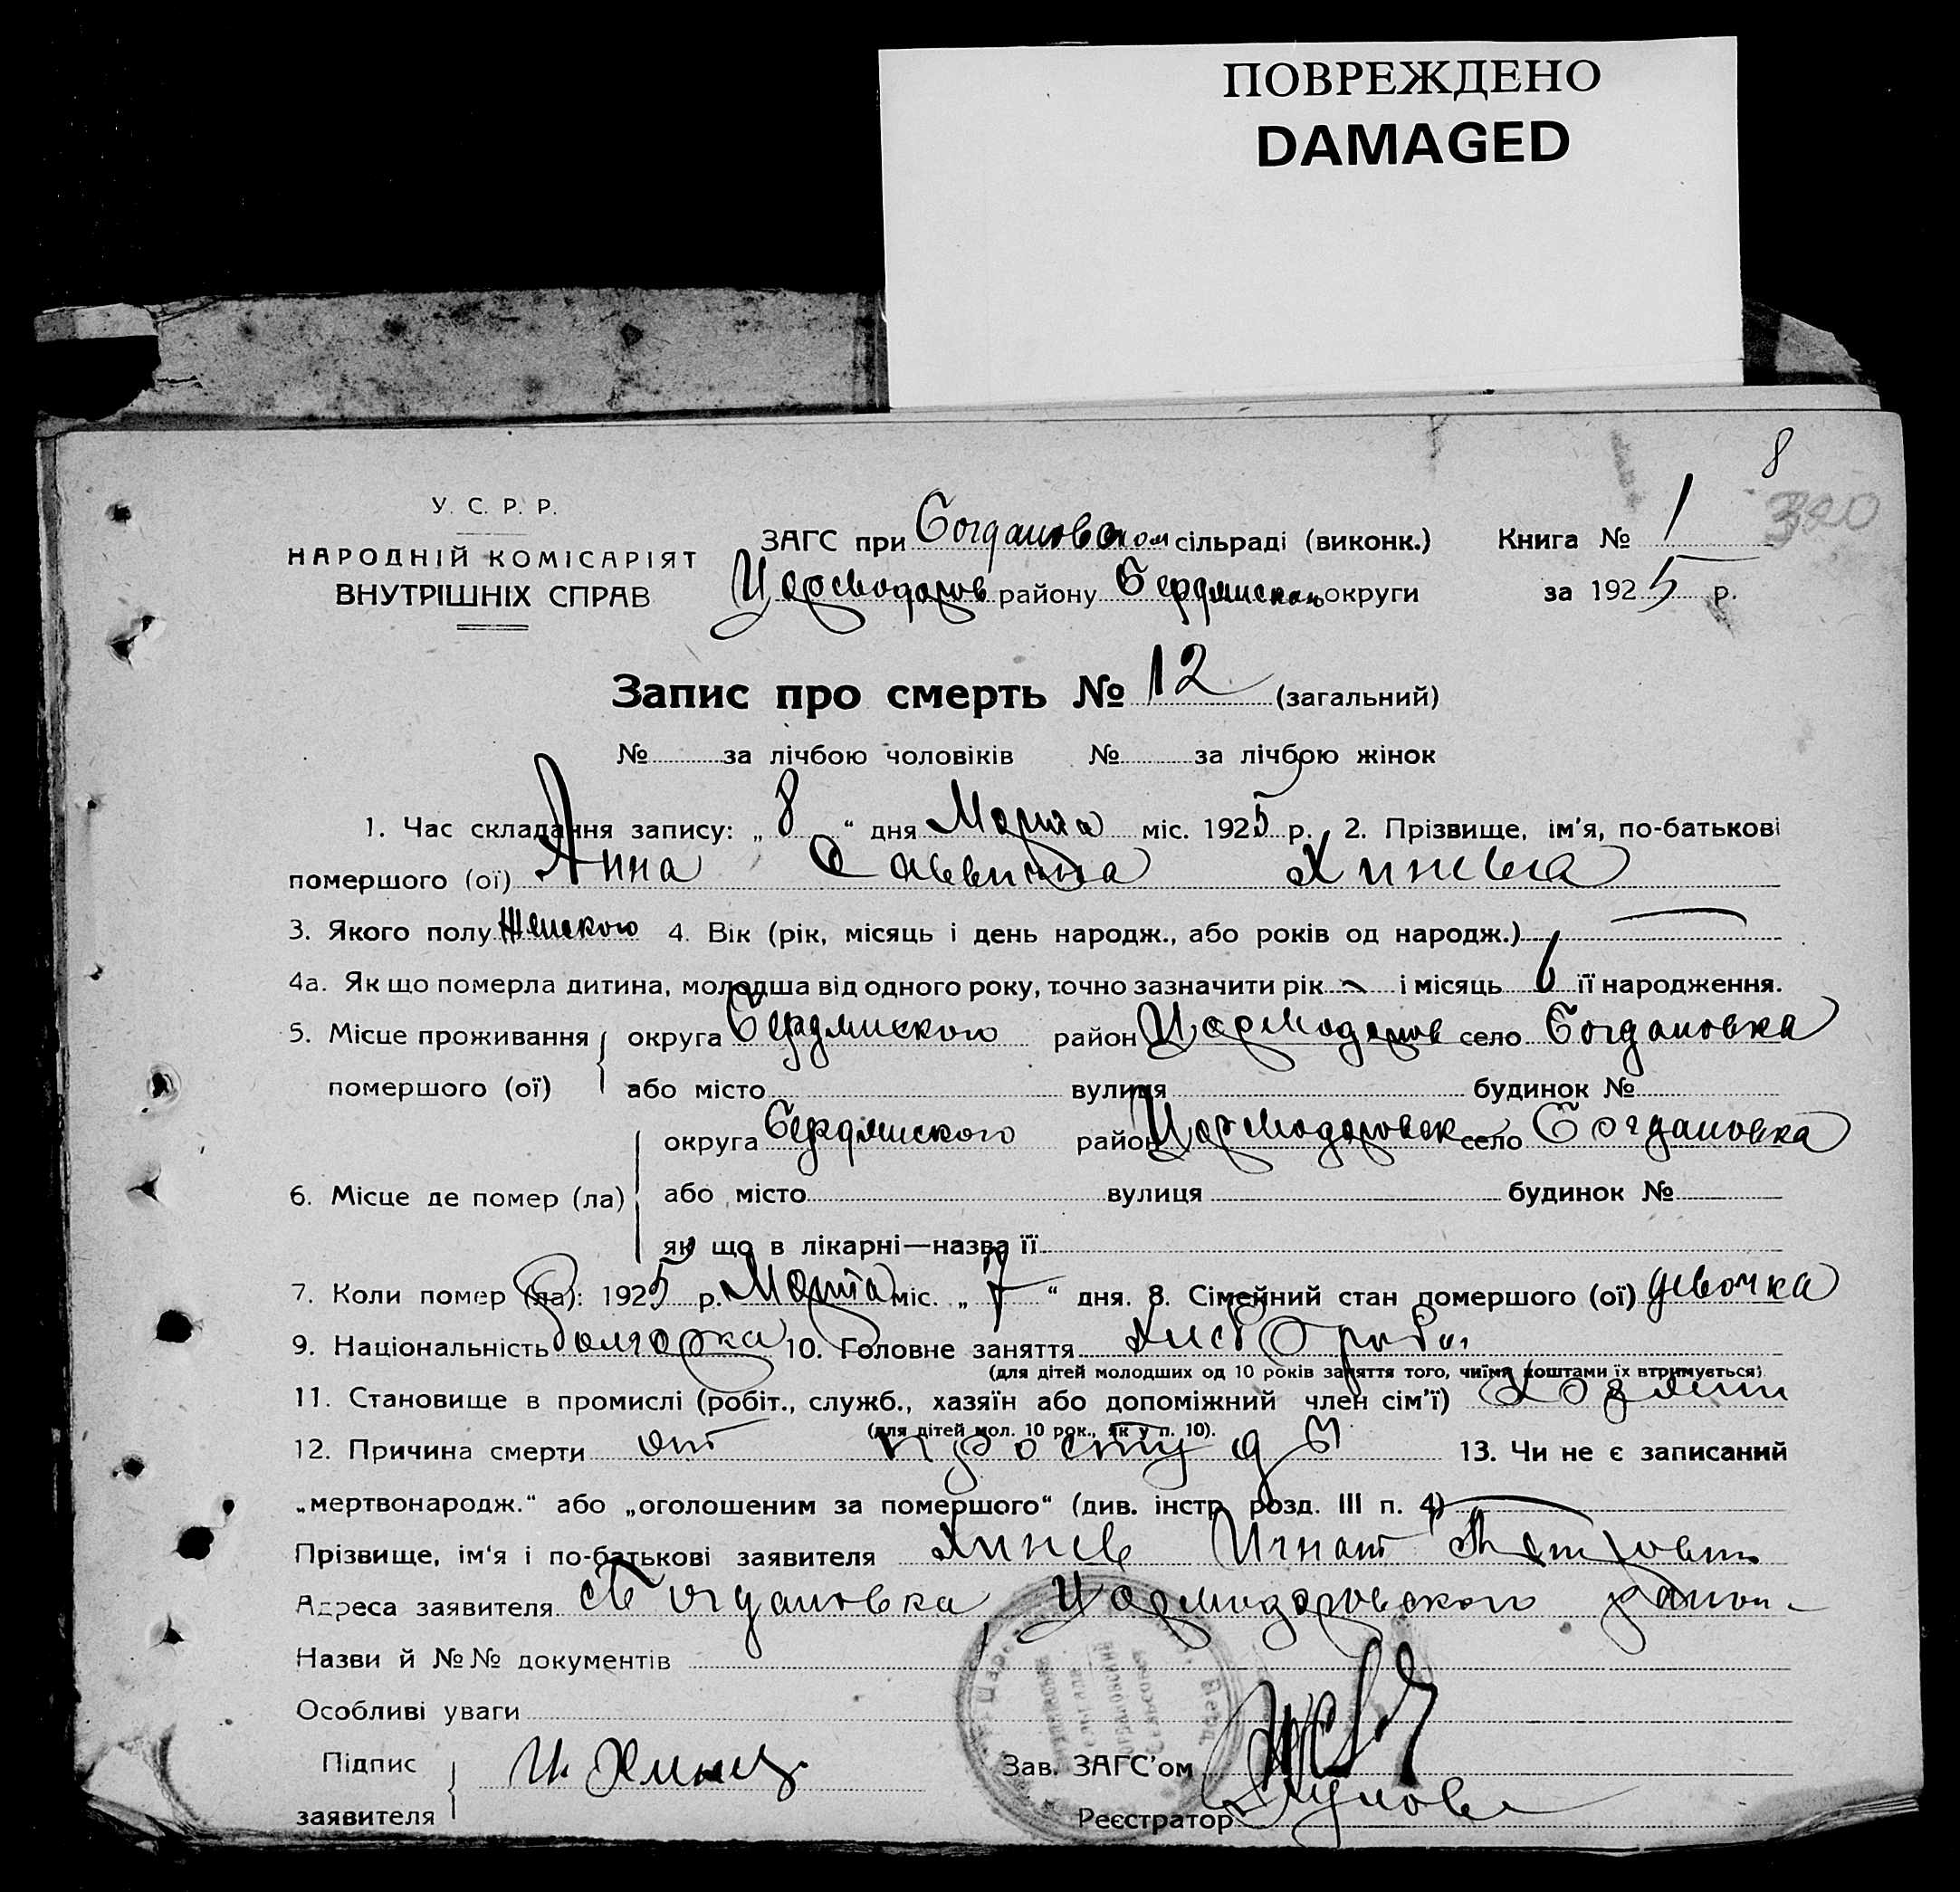 ПОВРЕЖДЕНО
DAMAGED
8
320
У. С. Р. Р.
НАРОДНІЙ КОМІСАРІЯТ
ВНУТРІШНІХ СПРАВ
ЗАГС при Богдановском сільраді (виконк.) Книга № 1
Цареводаров району Бердянской округи за 1925 р.
Запис про смерть № 12 (загальний)
№ за лічбою чоловіків № за лічбою жінок
1. Час складання запису: „ 8 “ дня Марта міс. 1925 р. 2. Прізвище, ім'я, по-батькові
помершого (ої) Анна Саввична Хинева
3. Якого полу Женского 4. Вік (рік, місяць і день народж., або років од народж.) —
4а. Як що померла дитина, молодша від одного року, точно зазначити рік і місяць 6 її народження.
5. Місце проживання округа Бердянского район село Богдановка
помершого (ої) або місто вулиця будинок №
округа Бердянского район село Богдановка
6. Місце де помер (ла) або місто вулиця будинок №
як що в лікарні—назва її
7. Коли помер (ла): 1925 р. Марта міс. „ 7 “ дня. 8. Сімейний стан помершого (ої) девочка
9. Національність болгарка 10. Головне заняття Хлебороб
(для дітей молодших од 10 років заняття того, чиїми коштами їх втримується)
11. Становище в промислі (робіт., служб., хазяїн або допоміжний член сім'ї) Хозяин
(для дітей мол. 10 рок., як у п. 10).
12. Причина смерти от простуды 13. Чи не є записаний
„мертвонародж.“ або „оголошеним за помершого“ (див. інстр. розд. III п. 4) —
Прізвище, ім'я і по-батькові заявителя Хинев Игнат Петрович
Адреса заявителя с Богдановка, района
Назви й №№ документів
Особливі уваги
Підпис И. Хинев Зав. ЗАГС'ом
заявителя Реєстратор